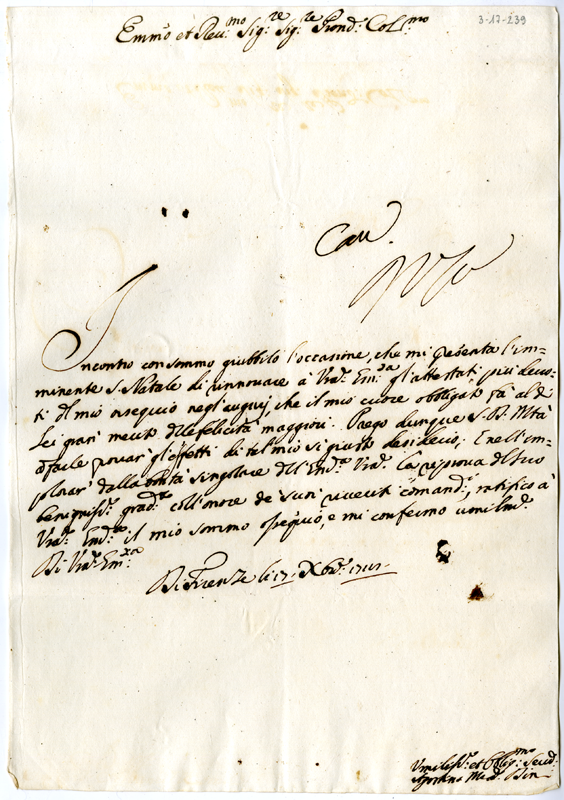 3-17-239
Emmo et Reu:mo Sig:re Sig:re Prond: Col:mo
Incontro con sommo giubbilo l'occasione, che mi presenta l'im-
minente S. Natale di rinnouare à Vra: Em:za gl'attestati più deuo-
ti del mio ossequio negl'augurij, che il mio cuore obbligato fà al di
Lei gran merito delle felicità maggiori. Prego dunque S. D. Mtà
à farle prouar gl'effetti di tal mio si giusto desiderio; E nell'im-
plorar dalla bontà singolare dell'Em:a Vra: la riproua del suo
benignis:o grad:o coll'onore de suoi riueriti comand:i, ratifico à
Vra: Em:a il mio sommo ossequio, e mi confermo umilm:e
Di Vra: Em:za
Di Firenze li 17. Xbr:
Umiliss:o et Obblig:mo Seru: